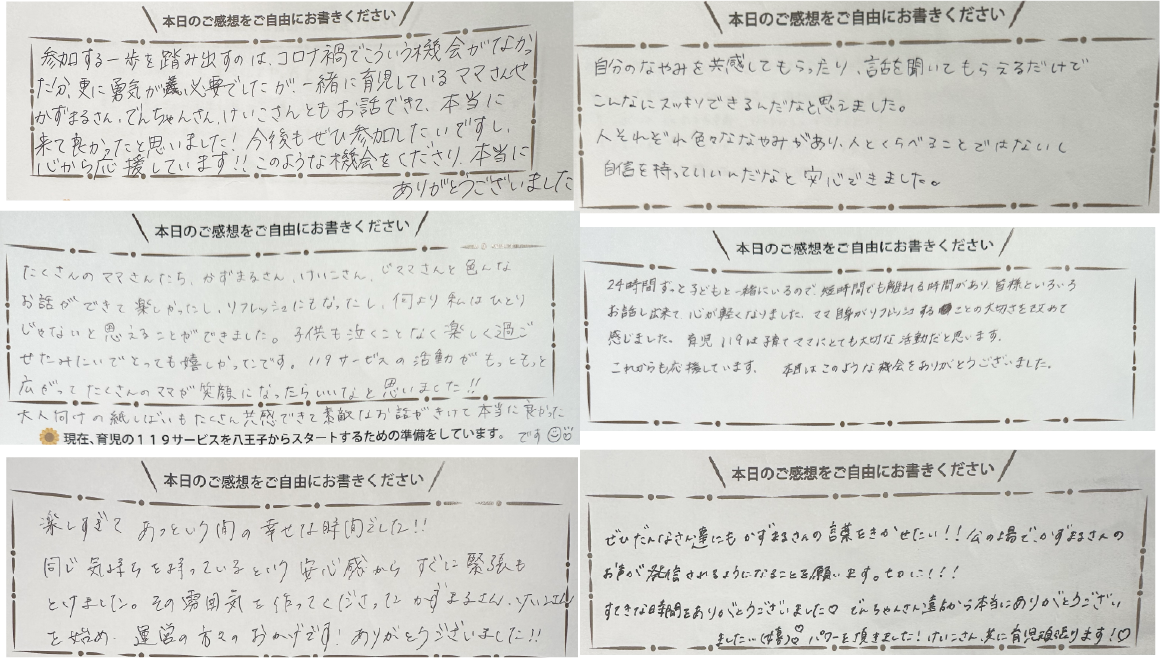 本日のご感想をご自由にお書きください
参加する一歩を踏み出すのは、コロナ禍でこういう機会がなかっ
たか、更に勇気が必要でしたが、一緒に育児しているママさんや
かずまるさん、でんちゃんさん、けいこさんともお話できて、本当に
来て良かったと思いました!今後もぜひ参加したいですし、
心から応援しています!!このような機会をくださり、本当に
ありがとうございました
本日のご感想をご自由にお書きください
自分のなやみを共感してもらったり、話を聞いてもらえるだけで
こんなにスッキリできるんだなと思えました。
人それぞれ色々ななやみがあり、人とくらべることではないし
自信を持っていいんだなと安心できました。
本日のご感想をご自由にお書きください
たくさんのママさんたち、かずまるさん、けいこさん、じママさんと色んな
お話ができて楽しかったし、リフレッシュにもなったし、何より私はひとり
じゃないと思えることができました。子供も泣くことなく楽しく過ご
せたみたいでとっても嬉しかったです。119サービスの活動がもっともっと
広がってたくさんのママが笑顔になったらいいなと思いました!!
大人向けの紙しばいもたくさん共感できて素敵なお話がきけて本当に良かった
です
現在、育児の119サービスを八王子からスタートするための準備をしています。
本日のご感想をご自由にお書きください
24時間ずっと子どもと一緒にいるので、短時間でも離れる時間があり、皆様といろいろ
お話し出来て心が軽くなりました。ママ自身がリフレッシュすることの大切さを改めて
感じました。育児119は子育てママにとても大切な活動だと思います。
これからも応援しています。 本日はこのような機会をありがとうございました。
本日のご感想をご自由にお書きください
楽しすぎて あっという間の幸せな時間でした!!
同じ気持ちを持っているという安心感からすぐに緊張も
とけました。その雰囲気を作ってくださったかずまるさん、けいこさん
を始め、運営の方々のおかげです!ありがとうございました!!
本日のご感想をご自由にお書きください
ぜひだんなさん達にもかずまるさんの言葉をきかせたい!!公の場で、かずまるさんの
お声が発信されるようになることを願います。切に!!!
すてきな時間をありがとうございました♡ でんちゃんさん遠方から本当にありがとうござい
ました…(嬉)♡ パワーを頂きました!けいこさん、共に育児頑張ります!♡